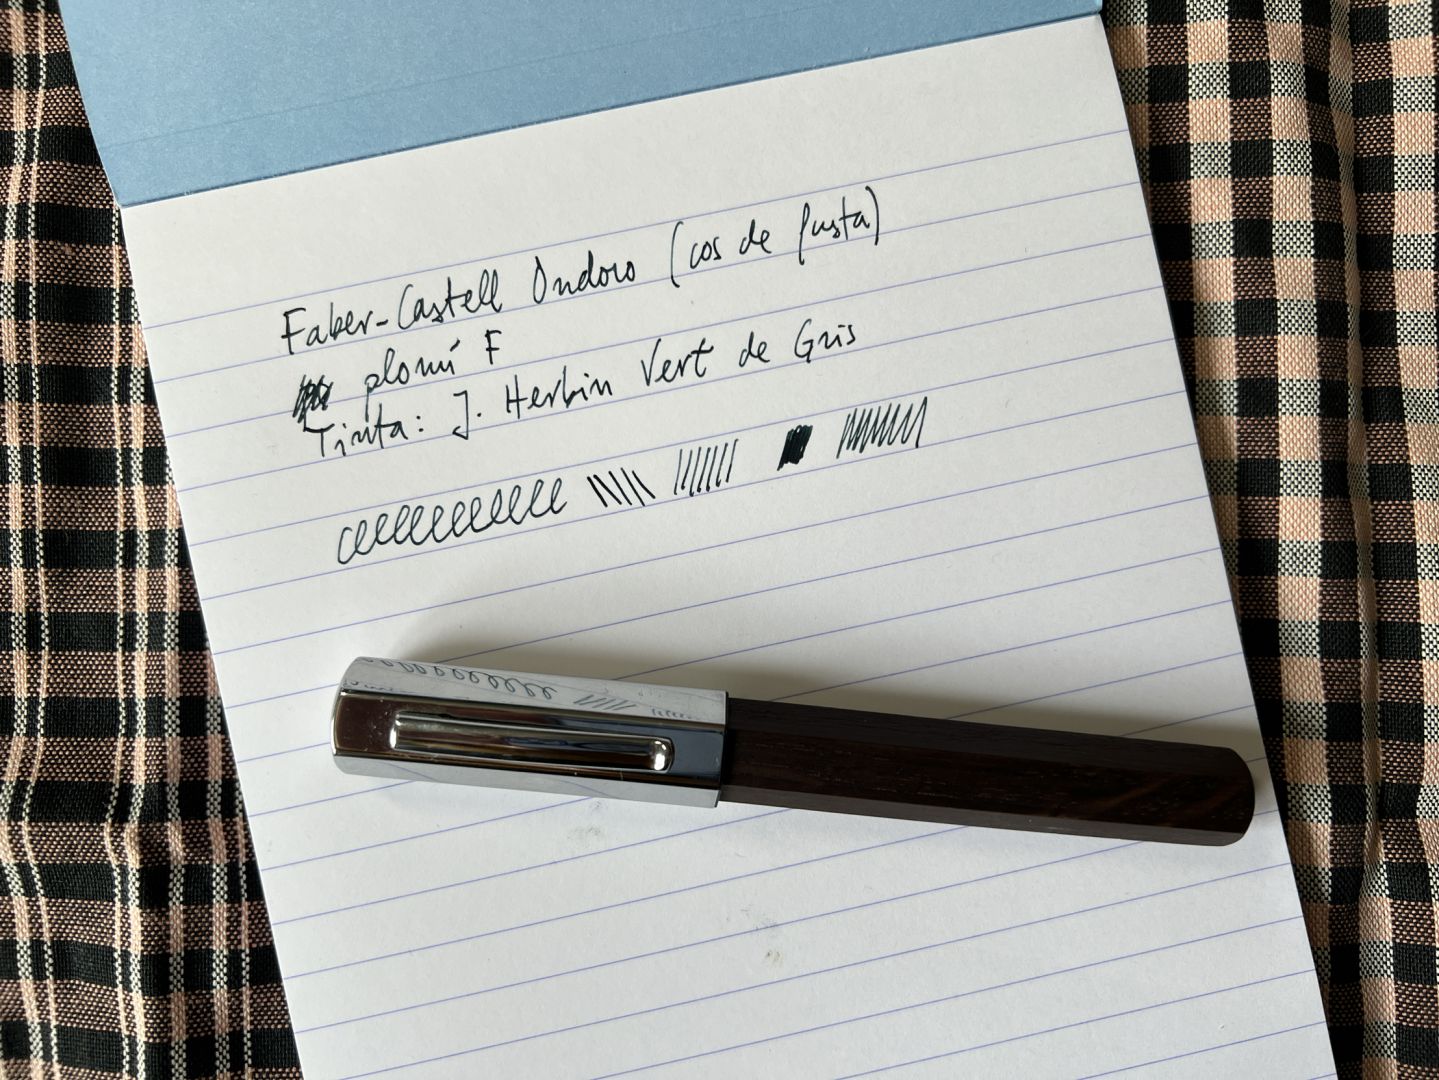 Faber-Castell Ondoro (cos de fusta)
plomí F
Tinta: J. Herbin Vert de Gris